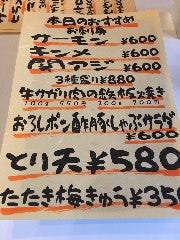 本日のおすすめ
お刺身
サーモン ¥600
キンメ ¥600
関アジ ¥600
3種盛り¥880
牛サガリ肉の鉄板焼き
おろしポン酢豚しゃぶサラダ
¥600
とり天¥580
たたき梅きゅう¥350